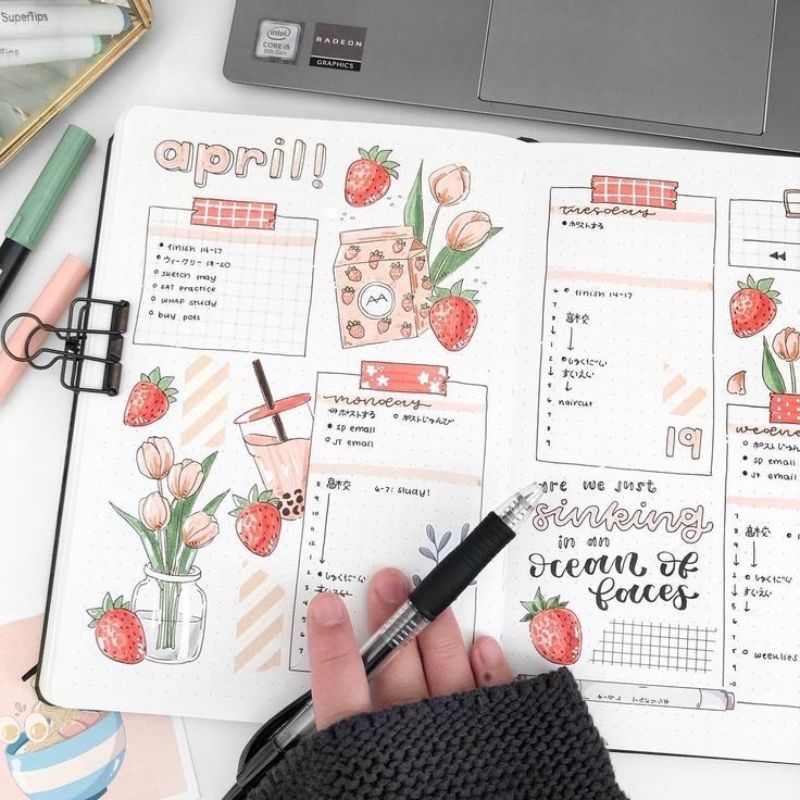 SuperTips
Tips
intel
CORE i5
8th Gen
RADEON
GRAPHICS
april!
finish 14-17
ウィークリー 18-20
sketch may
SAT practice
WHAP study
buy pots
AA
monday
ポストする
ポストじゅんび
sp email
JT email
6-7: study!
8
9
10
11
12
1
2
しゅくだい
すいえい
tuesday
ポストする
finish 14-17
しゅくだい
すいえい
haircut
19
are we just
sinking
in an
ocean of
faces
wedne
ポストじゅん
sp email
JT email
しゅくだい
すいえい
weeklies